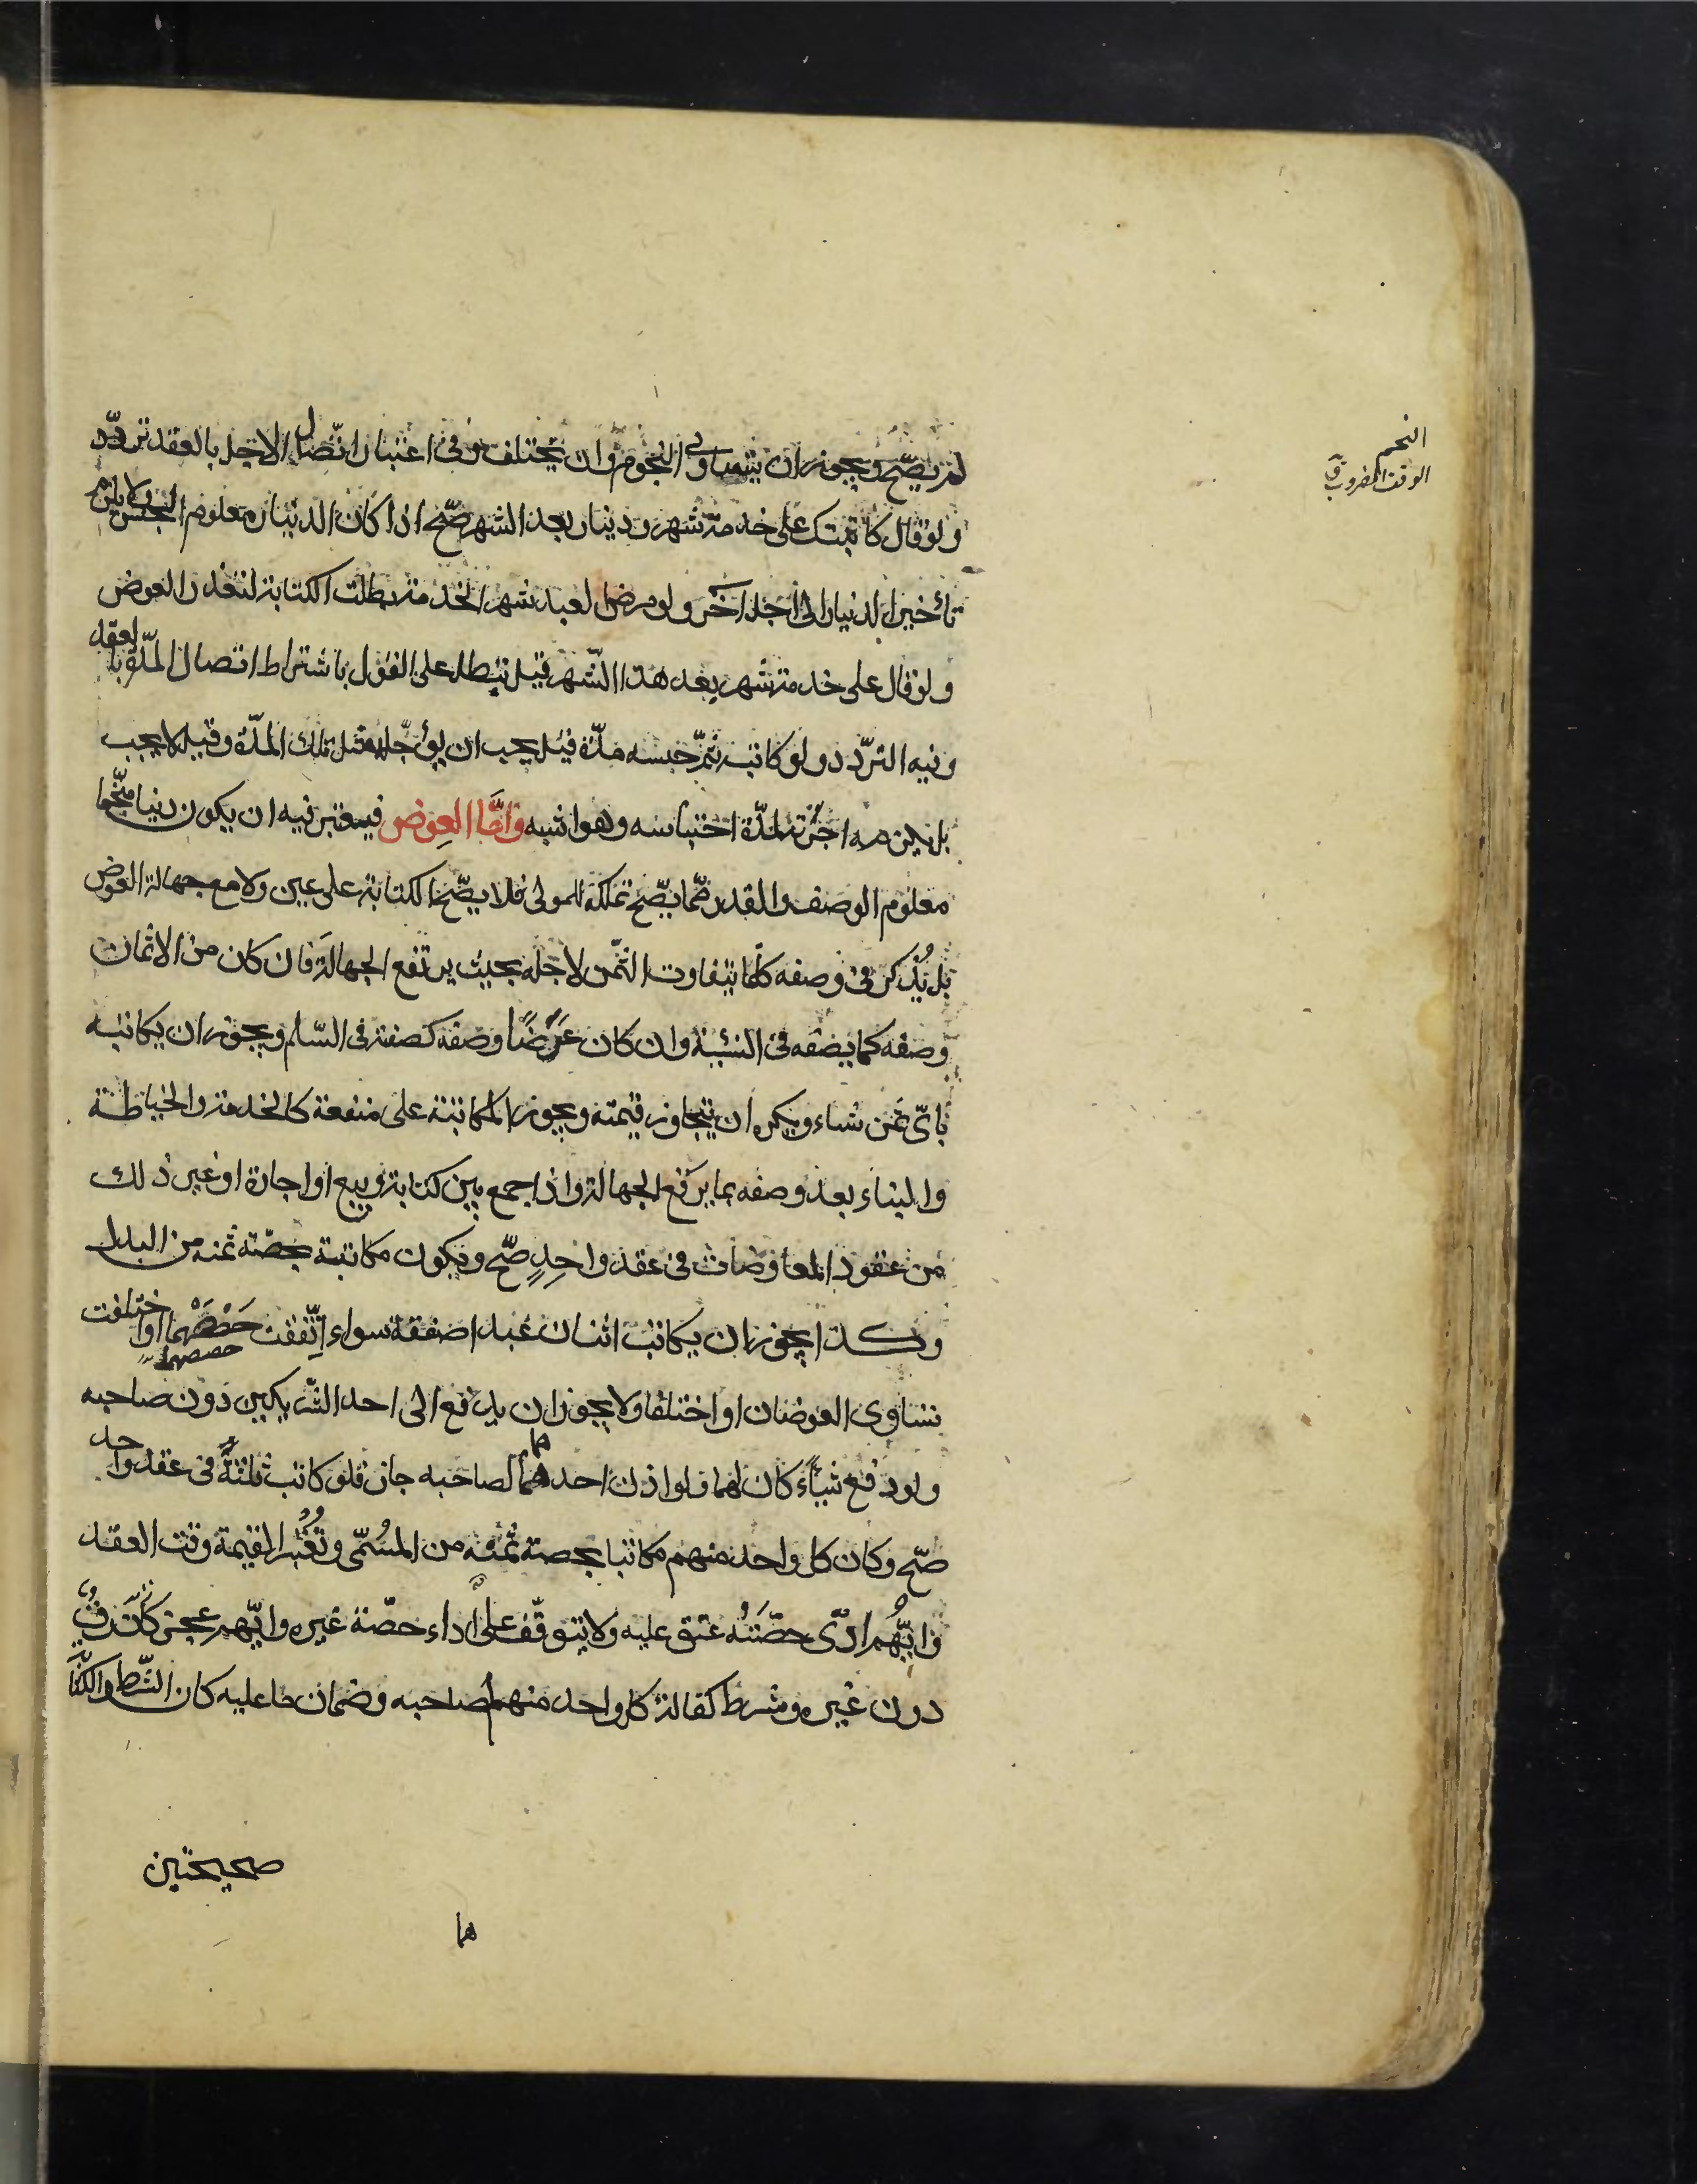 النجم
الوقت المضروب ق
لم يصح ويجوز ان يتساوى النجوم وان يختلف وفى اعتبار اتّصال الاجل بالعقد تردّد
ولو قال كاتبتك على خدمة شهر ودينار بعد الشهر صّح اذا كان الدينار معلوم الجنس ولا يلزم
تأخير الدنيار الى اجل اخَر ولو مرض العبد شهر الخدمة بطلت الكتابة لتعذر العوض
ولو قال على خدمة شهر بعد هذا الشّهر قيل تبطل على القول باشتراط اتصال المدّة بالعقد
وفيه التردّد ولو كاتبه ثمّ حبسه مدّة قيل يجب ان يؤجّله مثل تلك المدّة وقيل لا يجب
بل يلزمه اجرته لمدّة احتباسه وهو اشبه وامّا العِوض فيعتبر فيه ان يكون دينا منجّما
معلوم الوصف والقدر ممّا يصّح تملكه للمولى فلا يصّح الكتابة على عين ولا مع جهالة العوض
بل يُذكر فى وصفه كلّما يتفاوت الثمّن لاجله بحيث يرتفع الجهالة فان كان من الاثمان
وصفه كما يصفه فى النسيئة وان كان عَرَضًا وصفه كصفته فى السّلم ويجوز ان يكاتبه
باىّ ثمن شاء ويكره ان يتجاوز قيمته ويجوز المكاتبة على منفعة كالخدمة والخياطة
والبناء بعد وصفه بما يرفع الجهالة واذا جمع بين كتابة وبيع او اجارة او غير ذلك
من عقود المعاوضات فى عقد واحِدٍ صّح ويكون مكاتبة بحصّة ثمنه من البدل
وكذا يجوز ان يكاتب اثنان عبدا صفقة سواء اتّفقت حَصَصُهما او اختلفت
حصصهما
تساوى العوضان او اختلفا ولا يجوز ان يدفع الى احد الشّريكين دون صاحبه
ولو دفع شيًاء كان لهما ولو اذن احدهما لصاحبه جاز فلو كاتب ثلثةً فى عقد واحد
هما
صّح وكان كل واحد منهم مكاتبا بحصة ثمنه من المسُمّى وتُعْتَبر القيمة وقت العقد
وايّهُم ادّى حصّتَهُ عتق عليه ولا يتوقّف على اداء حصّة غيره وايّهم عجز كانَ رقّ
دون غيره ومشرط كفالة كل واحد منهم لصاحبه وضمان ما عليه كان الشّرط والكتا
صحيحتين
هما